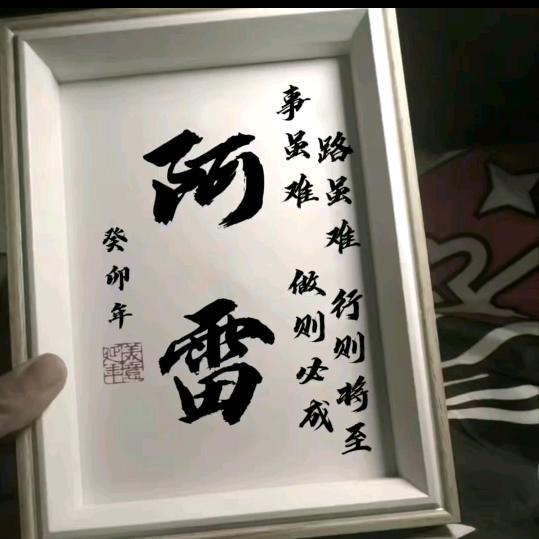 路虽难 行则将至
事虽难 做则必成
阿雷
癸卯年